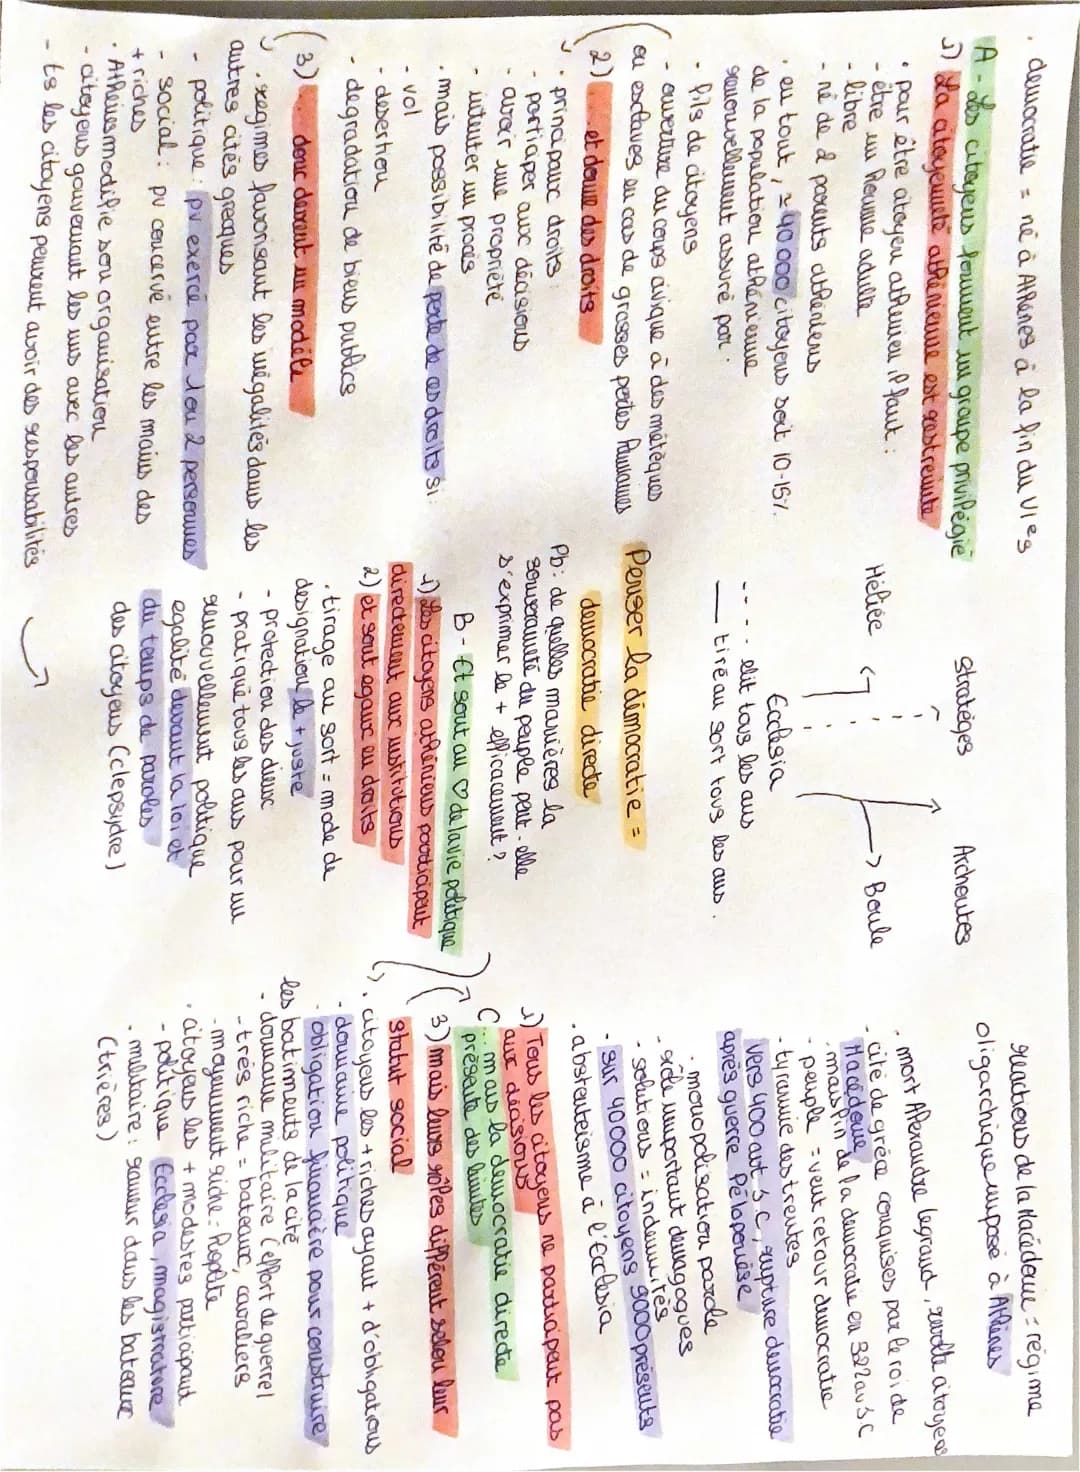 . democratie = né à Athènes à la fin du VI es
A - Les citoyens forment un groupe privilégié
1) La citoyenneté athénienne est restreinte
. pour être citoyen athenien il faut :
- être un homme adulte
- libre
- né de 2 parents athéniens
. en tout, ≃ 40 000 citoyens soit 10-15%
de la population athénienne
renouvellement assuré par :
- fils de citoyens
- ouverture du corps civique à des métèques
ou esclaves en cas de grosses pertes humaines
2) ... et donne des droits
. principaux droits :
- participer aux décisions
- avoir une propriété
- intenter un procès
. mais possibilité de perte de ces droits si :
- vol
- desertion
- degradation de biens publics
3) ... donc devient un modèle
. regimes favorisant les inégalités dans les
autres cités grecques
- politique : pv exercé par 1 ou 2 personnes
- social : pv concervé entre les mains des
+ riches
. Athènes modifie son organisation
- citoyens gouvernant les uns avec les autres
- ts les citoyens peuvent avoir des responsabilités
stratèges
Archontes
Héliée
Boule
Ecclesia
---- élit tous les ans
— tiré au sort tous les ans .
Penser la démocratie =
democratie directe
Pb : de quelles manières la
souveraineté du peuple peut - elle
s'exprimer le + efficacement ?
B - Et sont au ♡ de la vie politique
1) Les citoyens athéniens participent
directement aux institutions
2) et sont egaux en droits
. tirage au sort = mode de
designation le + juste
- protection des dieux
- pratiqué tous les ans pour un
renouvellement politique
egalité devant la loi et
du temps de paroles
des citoyens (clepsydre)
3) mais leurs rôles diffèrent selon leur
statut social
. citoyens les + riches ayant + d'obligations
- domaine politique
obligation financière pour construire
les batiments de la cité
- domaine militaire (effort de guerre)
- très riche = bateaux, cavaliers
- moyennement riche = hoplite
. citoyens les + modestes participant
- politique Ecclesia, magistrature
. militaire : rameur dans les bateaux
(trières)
C ... mais la democratie directe
présente des limites
1) Tous les citoyens ne participent pas
aux décisions
. abstenteisme à l'Ecclesia
- sur 40 000 citoyens 9000 présents
- solutions = indemnités
- rôle important demagogues
. monopolisation parole
après guerre Péloponèse
vers 400 avt J.C, rupture democratie
- tyrannie des trentes
- peuple = veut retour democratie
. mais fin de la democratie en 322 av J.C
. cité de grèce conquises par le roi de
Macédoine
. mort Alexandre legrand, revolte citoyens
reactions de la Macédoine = régime
oligarchique imposé à Athènes